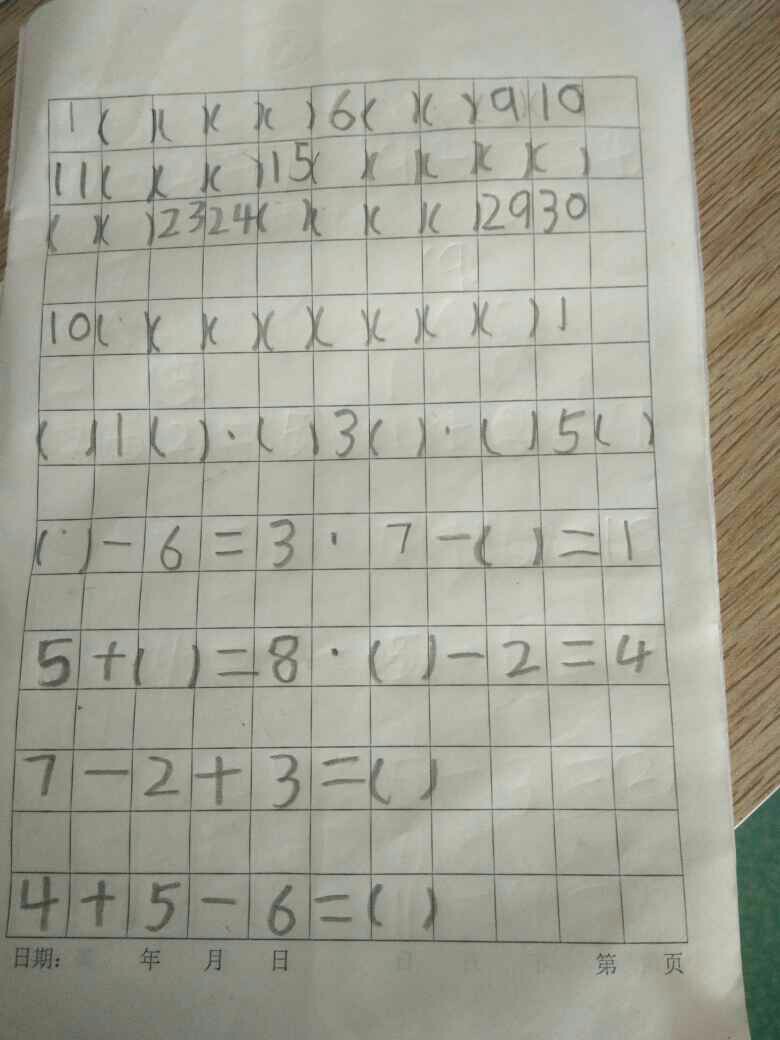 1( )( )( )( )6( )( )9 10
11( )( )( )15( )( )( )( )( )
( )( )23 24( )( )( )( )29 30
10( )( )( )( )( )( )( )( )1
( )1( )·( )3( )·( )5( )
( )-6=3·7-( )=1
5+( )=8·( )-2=4
7-2+3=( )
4+5-6=( )
日期: 年 月 日 第 页